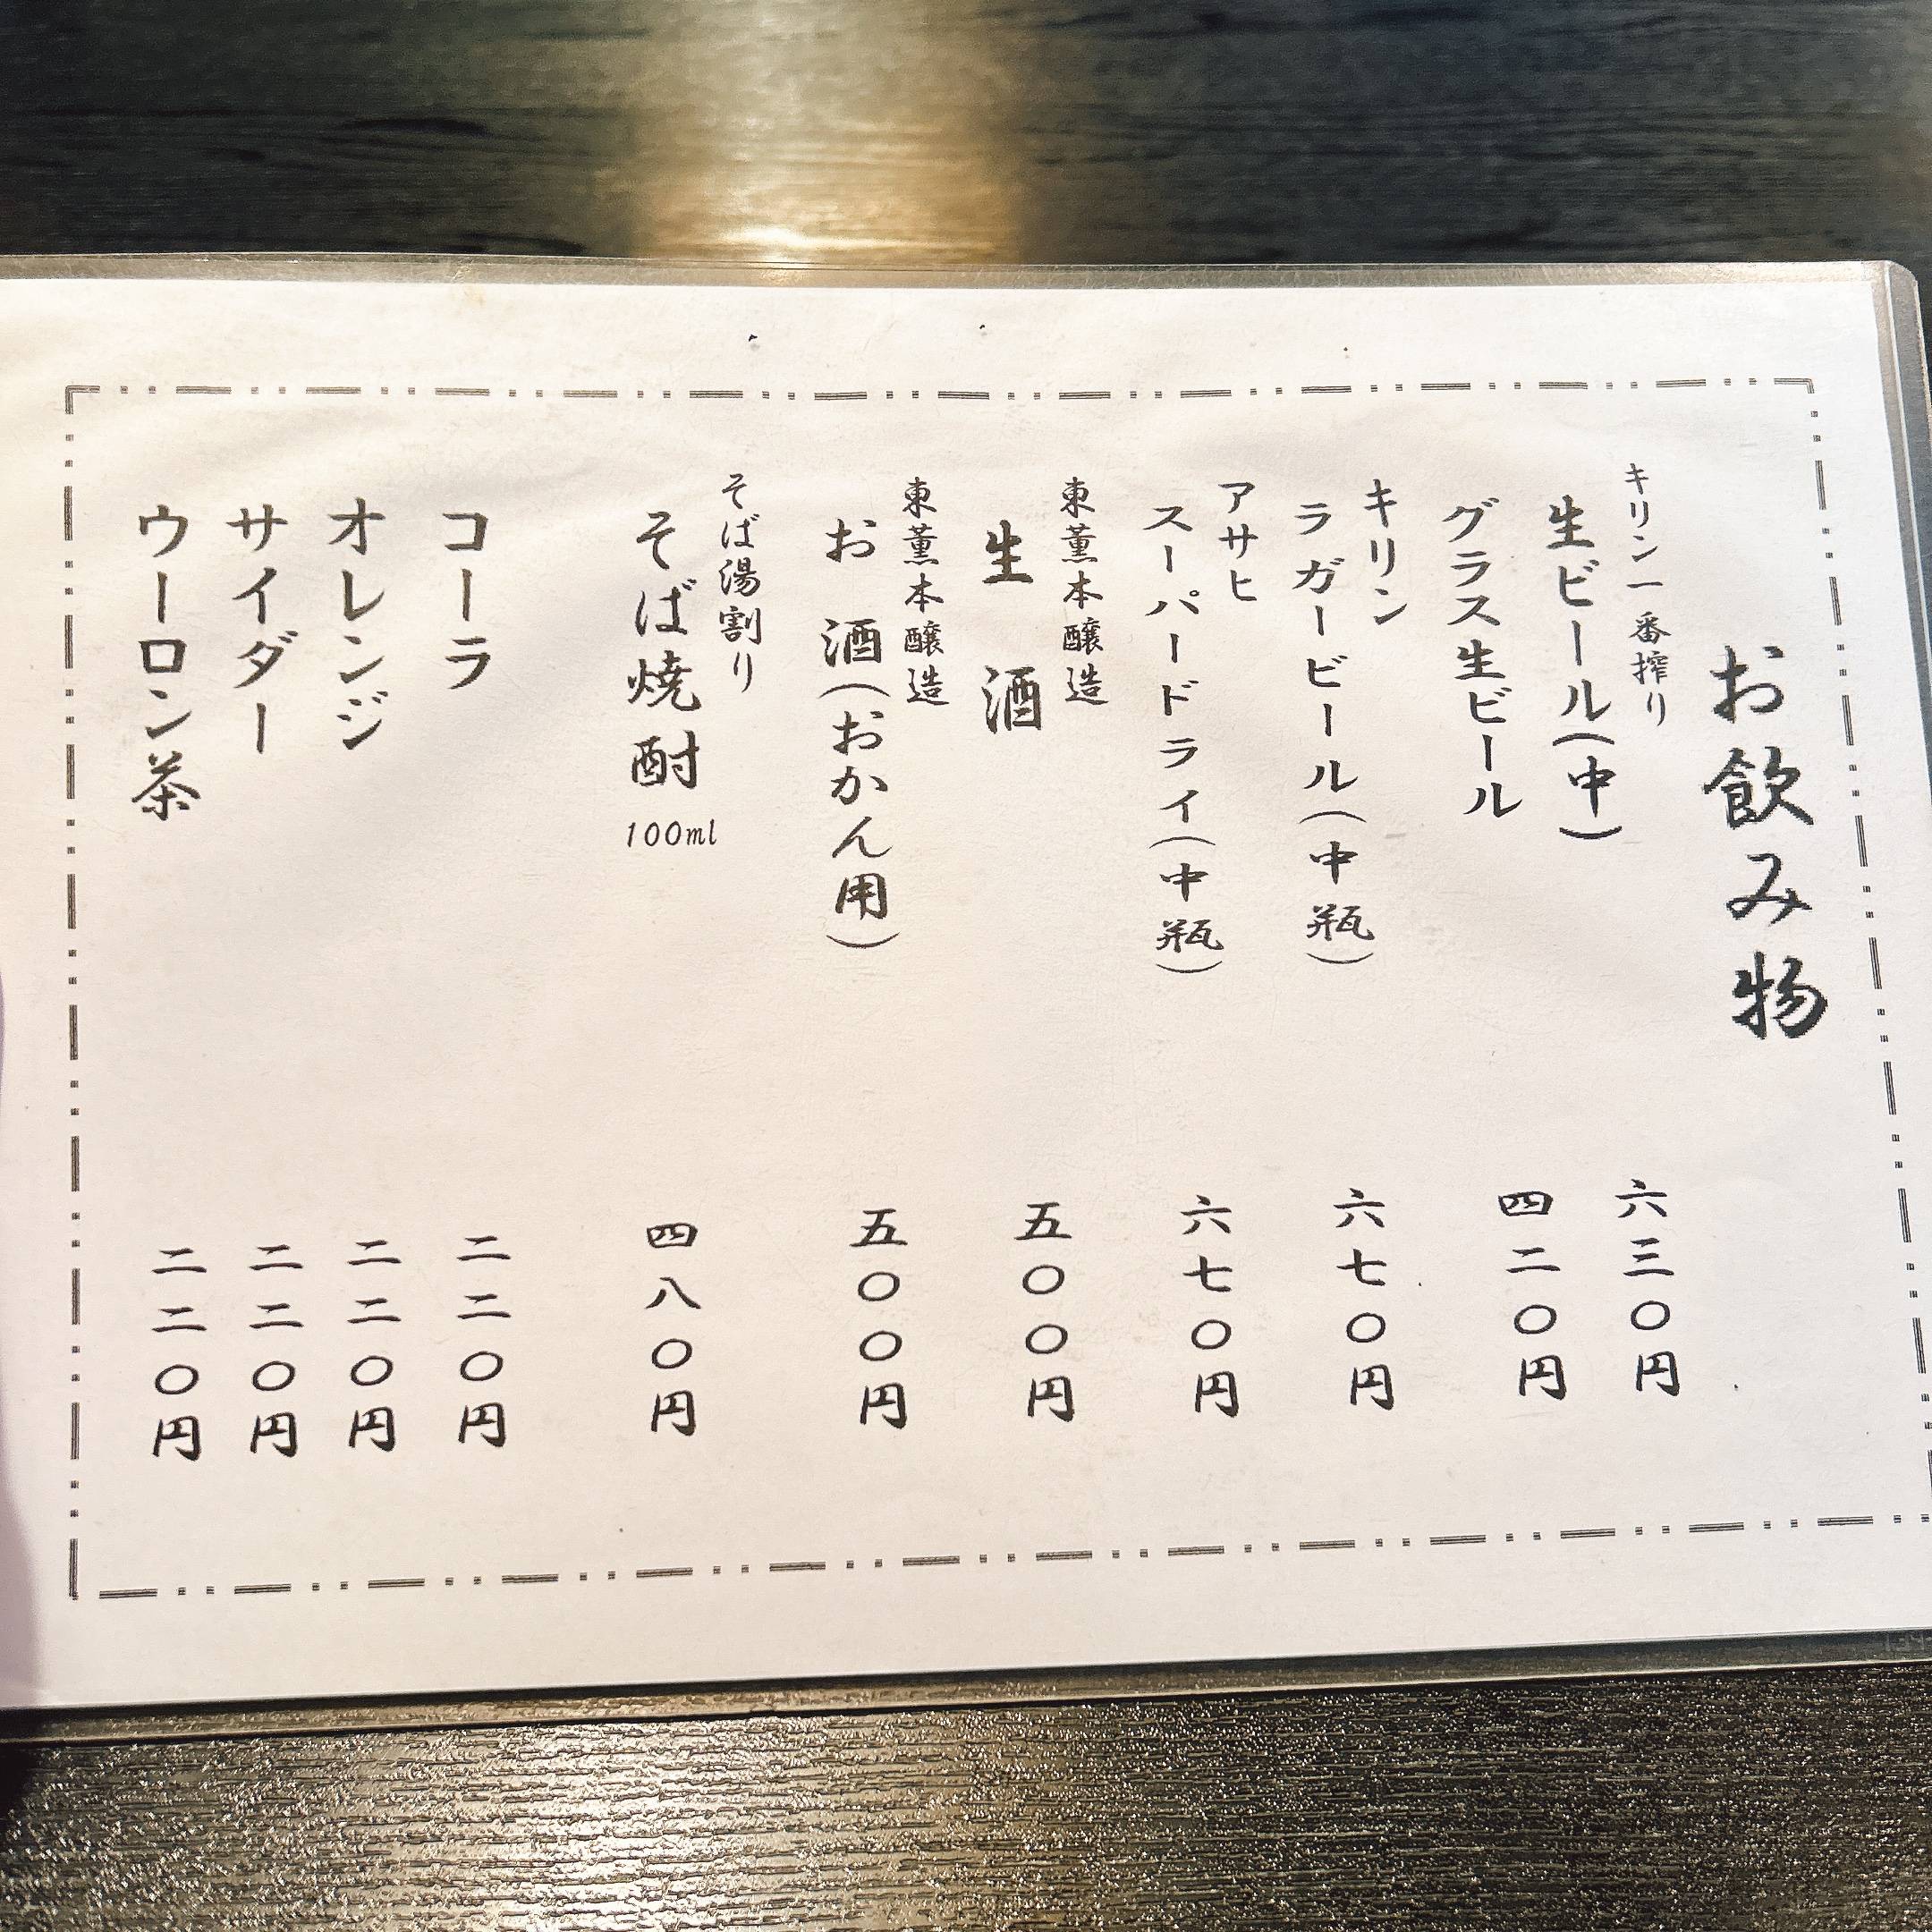 お飲み物
キリン一番搾り
生ビール(中)
六三〇円
グラス生ビール
四二〇円
キリン
ラガービール(中瓶)
六七〇円
アサヒ
スーパードライ(中瓶)
六七〇円
東薫本醸造
生酒
五〇〇円
東薫本醸造
お酒(おかん用)
五〇〇円
そば湯割り
そば焼酎 100ml
四八〇円
コーラ
二二〇円
オレンジ
二二〇円
サイダー
二二〇円
ウーロン茶
二二〇円